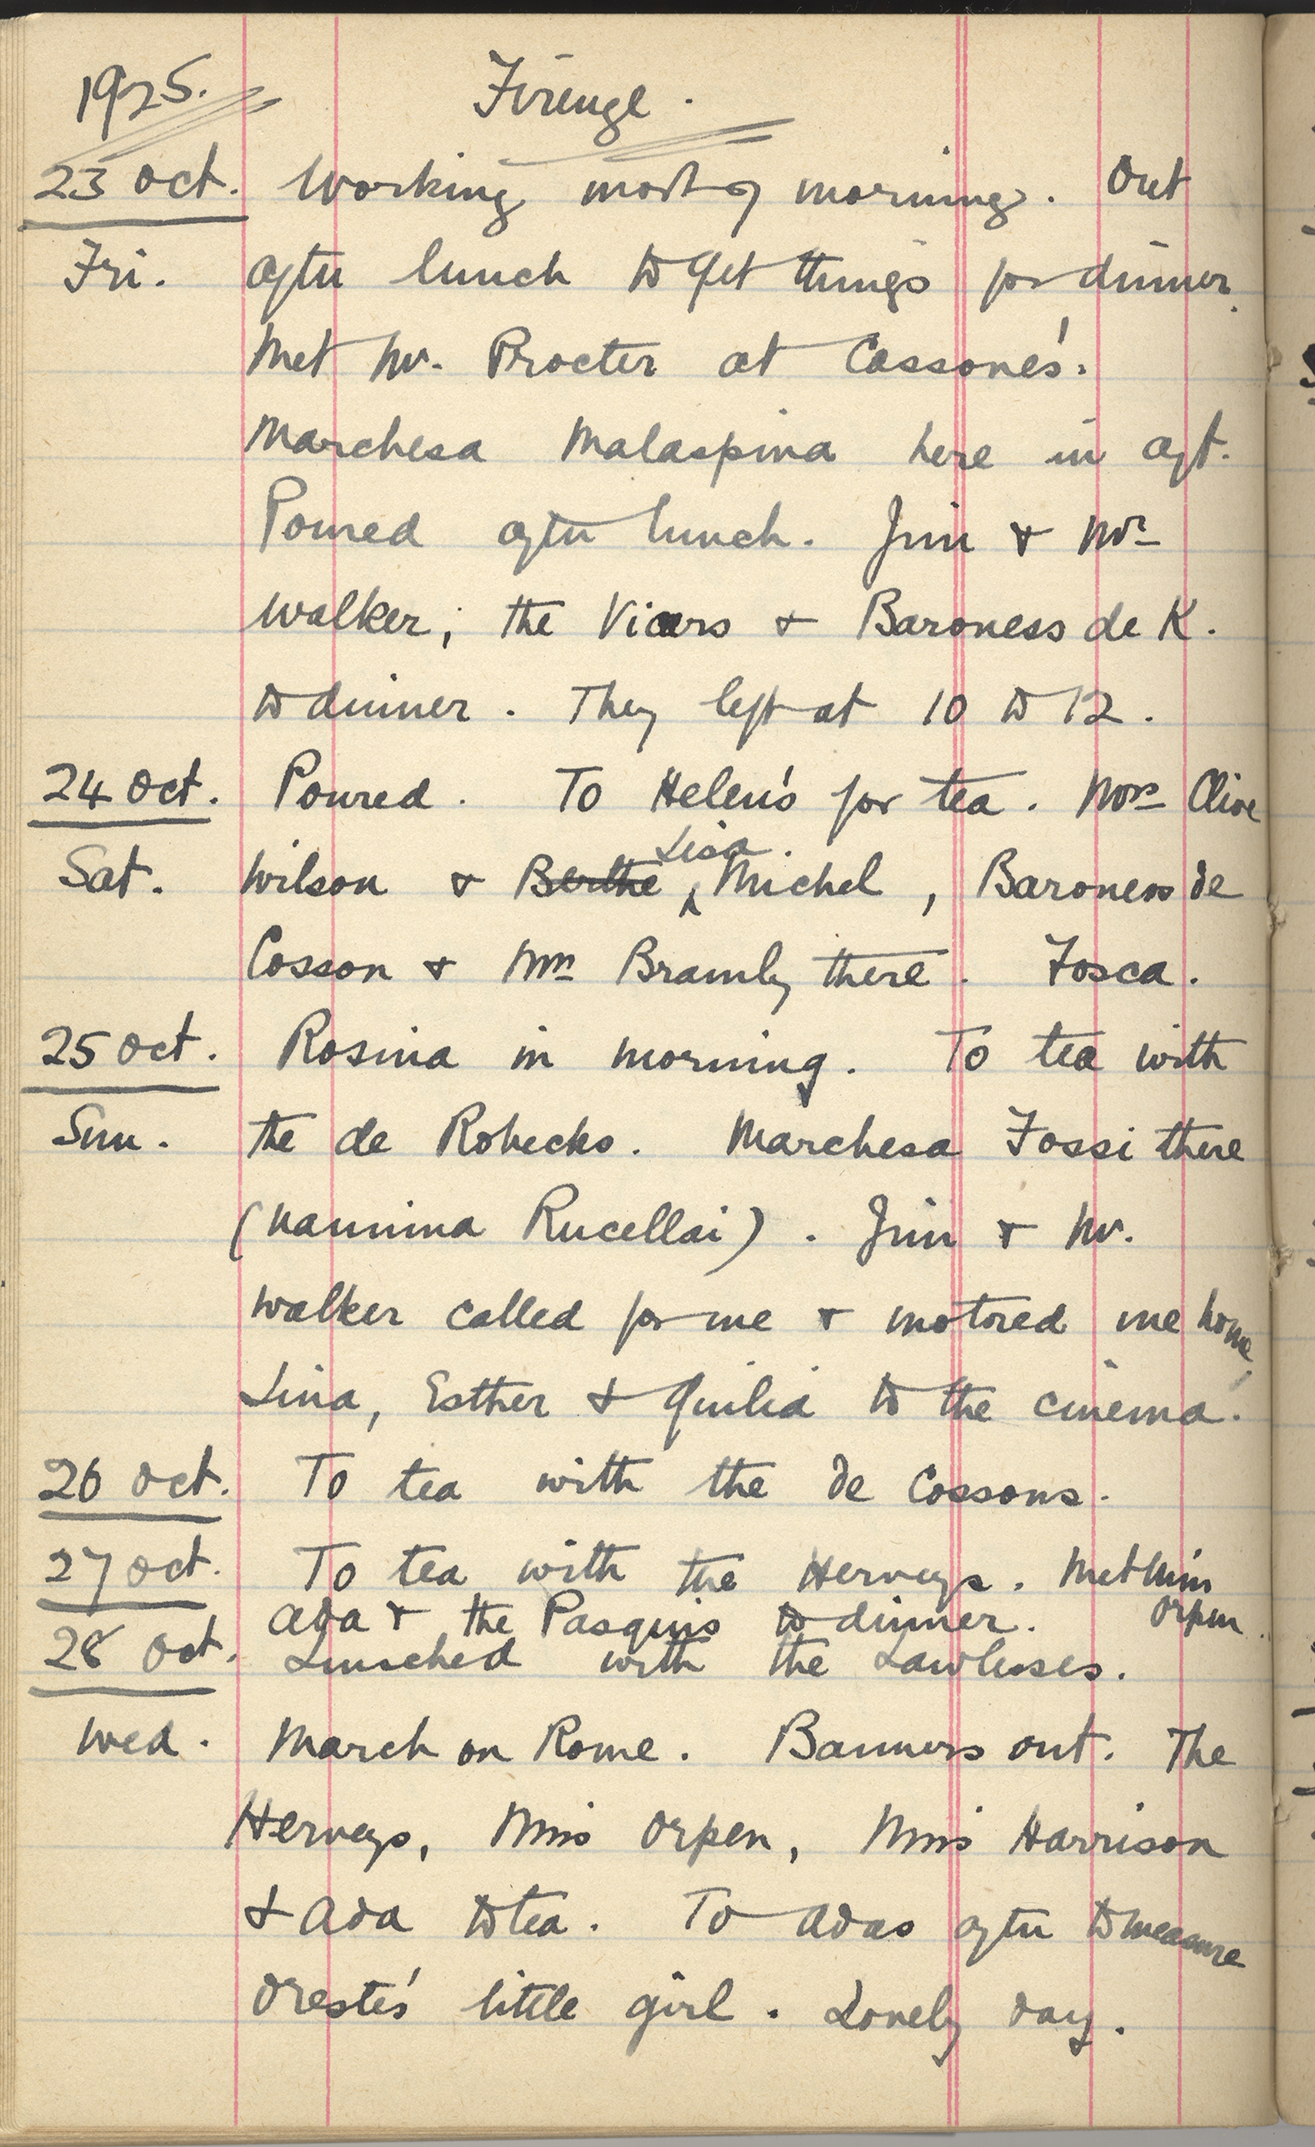 1925. Firenze.
23 Oct. Working most of morning. Out
Fri. after lunch to get things for dinner.
Met Mr. Procter at Cassone's.
Marchesa Malaspina here in aft.
Poured after lunch. Jim & Mr
Walker; the Vicars & Baroness de K.
to dinner. They left at 10 to 12.
24 Oct. Poured. To Helen's for tea. Mrs Clive
Lisa.
Sat. Wilson & Berthe Michel, Baroness de
Cosson & Mrs Bramly there. Tosca.
25 Oct. Rosina in morning. To tea with
Sun. the de Robecks. Marchesa Fossi there
(Nannina Rucellai). Jim & Mr.
Walker called for me & motored me home.
Lina, Esther & Giulia to the cinema.
26 Oct. To tea with the de Cossons.
27 Oct. To tea with the Herveys. Met Miss
Orpen.
Ada & the Pasquis to dinner.
28 Oct. Lunched with the Lawlesses.
Wed. March on Rome. Banners out. The
Herveys, Miss Orpen, Miss Harrison
& Ada to tea. To Adas after to measure
Oreste's little girl. Lovely day.